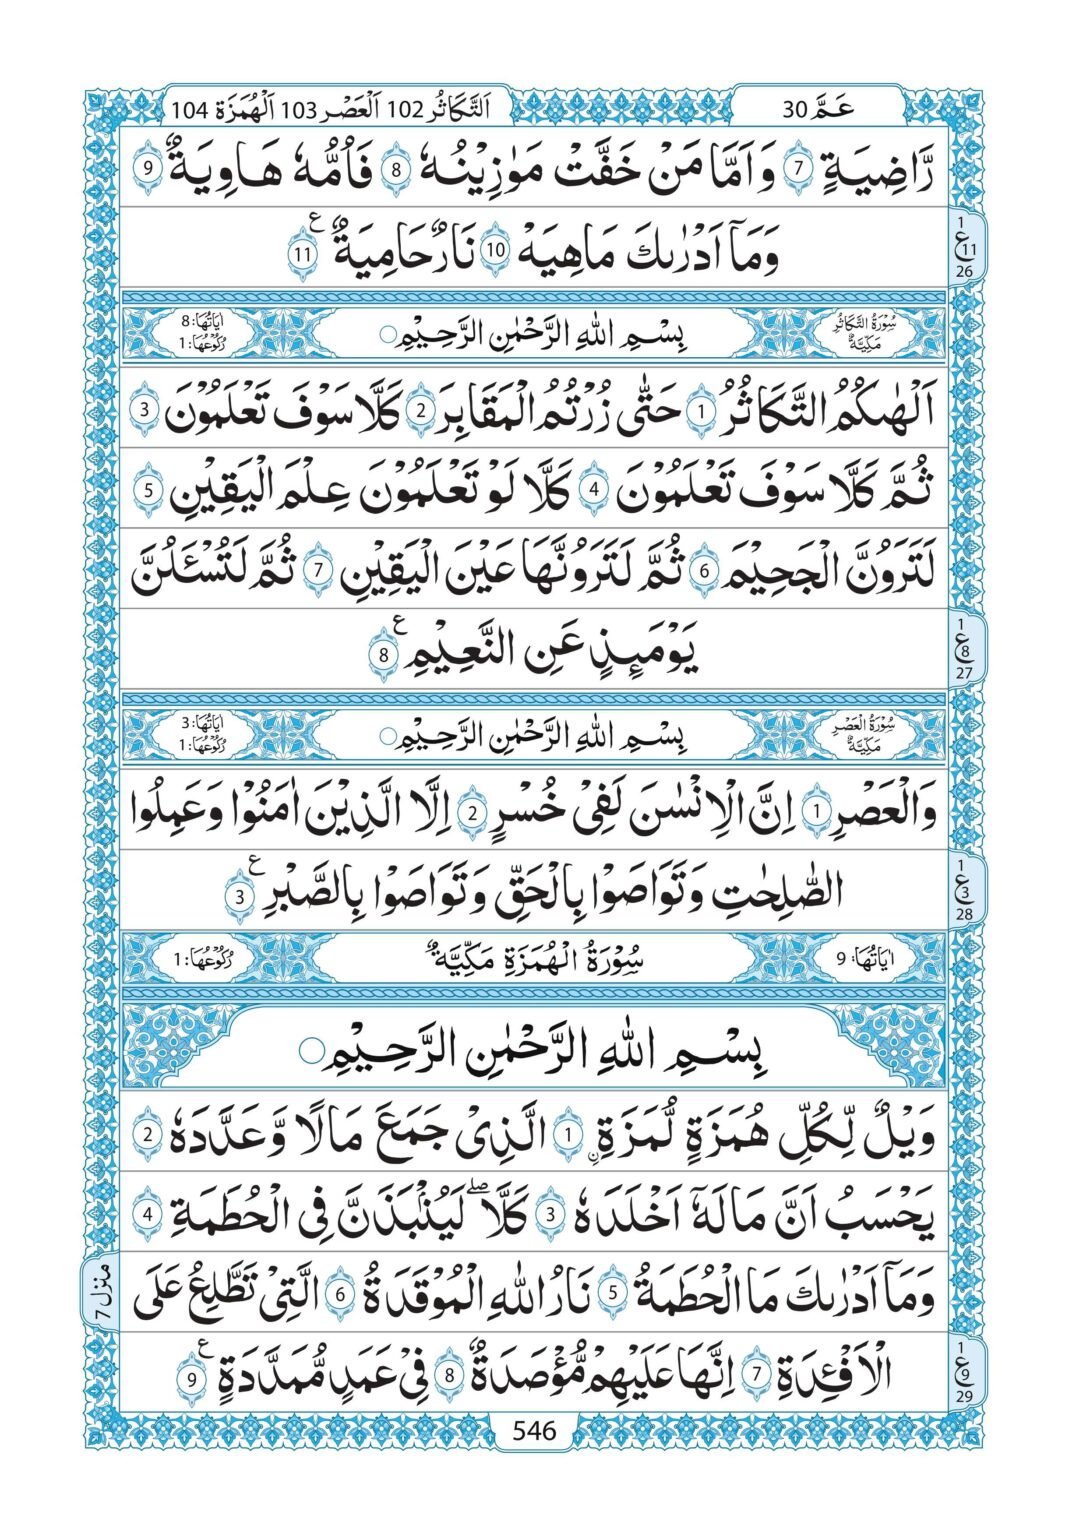 عَمَّ 30
اَلتَّكَاثُر 102 اَلْعَصْر 103 اَلْهُمَزَة 104
رَّاضِيَةٍ 7 وَاَمَّا مَنْ خَفَّتْ مَوَازِيْنُهٗ 8 فَاُمُّهٗ هَاوِيَةٌ 9
وَمَاۤ اَدْرٰىكَ مَاهِيَهْ 10 نَارٌ حَامِيَةٌ 11
1
ع 11
26
سُوْرَةُ التَّكَاثُرِ مَكِّيَّةٌ
بِسْمِ اللّٰهِ الرَّحْمٰنِ الرَّحِيْمِ
اٰيَاتُهَا: 8
رُكُوْعُهَا: 1
اَلْهٰىكُمُ التَّكَاثُرُ 1 حَتّٰى زُرْتُمُ الْمَقَابِرَ 2 كَلَّا سَوْفَ تَعْلَمُوْنَ 3
ثُمَّ كَلَّا سَوْفَ تَعْلَمُوْنَ 4 كَلَّا لَوْ تَعْلَمُوْنَ عِلْمَ الْيَقِيْنِ 5
لَتَرَوُنَّ الْجَحِيْمَ 6 ثُمَّ لَتَرَوُنَّهَا عَيْنَ الْيَقِيْنِ 7 ثُمَّ لَتُسْـَٔلُنَّ
يَوْمَىِٕذٍ عَنِ النَّعِيْمِ 8
1
ع 8
27
سُوْرَةُ الْعَصْرِ مَكِّيَّةٌ
بِسْمِ اللّٰهِ الرَّحْمٰنِ الرَّحِيْمِ
اٰيَاتُهَا: 3
رُكُوْعُهَا: 1
وَالْعَصْرِ 1 اِنَّ الْاِنْسٰنَ لَفِيْ خُسْرٍ 2 اِلَّا الَّذِيْنَ اٰمَنُوْا وَعَمِلُوا
الصّٰلِحٰتِ وَتَوَاصَوْا بِالْحَقِّ وَتَوَاصَوْا بِالصَّبْرِ 3
1
ع 3
28
اٰيَاتُهَا: 9
سُوْرَةُ الْهُمَزَةِ مَكِّيَّةٌ
رُكُوْعُهَا: 1
بِسْمِ اللّٰهِ الرَّحْمٰنِ الرَّحِيْمِ
وَيْلٌ لِّكُلِّ هُمَزَةٍ لُّمَزَةِ 1 الَّذِيْ جَمَعَ مَالًا وَّعَدَّدَهٗ 2
يَحْسَبُ اَنَّ مَالَهٗۤ اَخْلَدَهٗ 3 كَلَّا ۖ لَيُنْۢبَذَنَّ فِى الْحُطَمَةِ 4
وَمَاۤ اَدْرٰىكَ مَا الْحُطَمَةُ 5 نَارُ اللّٰهِ الْمُوْقَدَةُ 6 الَّتِيْ تَطَّلِعُ عَلَى
منزل 7
الْاَفْـِٕدَةِ 7 اِنَّهَا عَلَيْهِمْ مُّؤْصَدَةٌ 8 فِيْ عَمَدٍ مُّمَدَّدَةٍ 9
1
ع 9
29
546